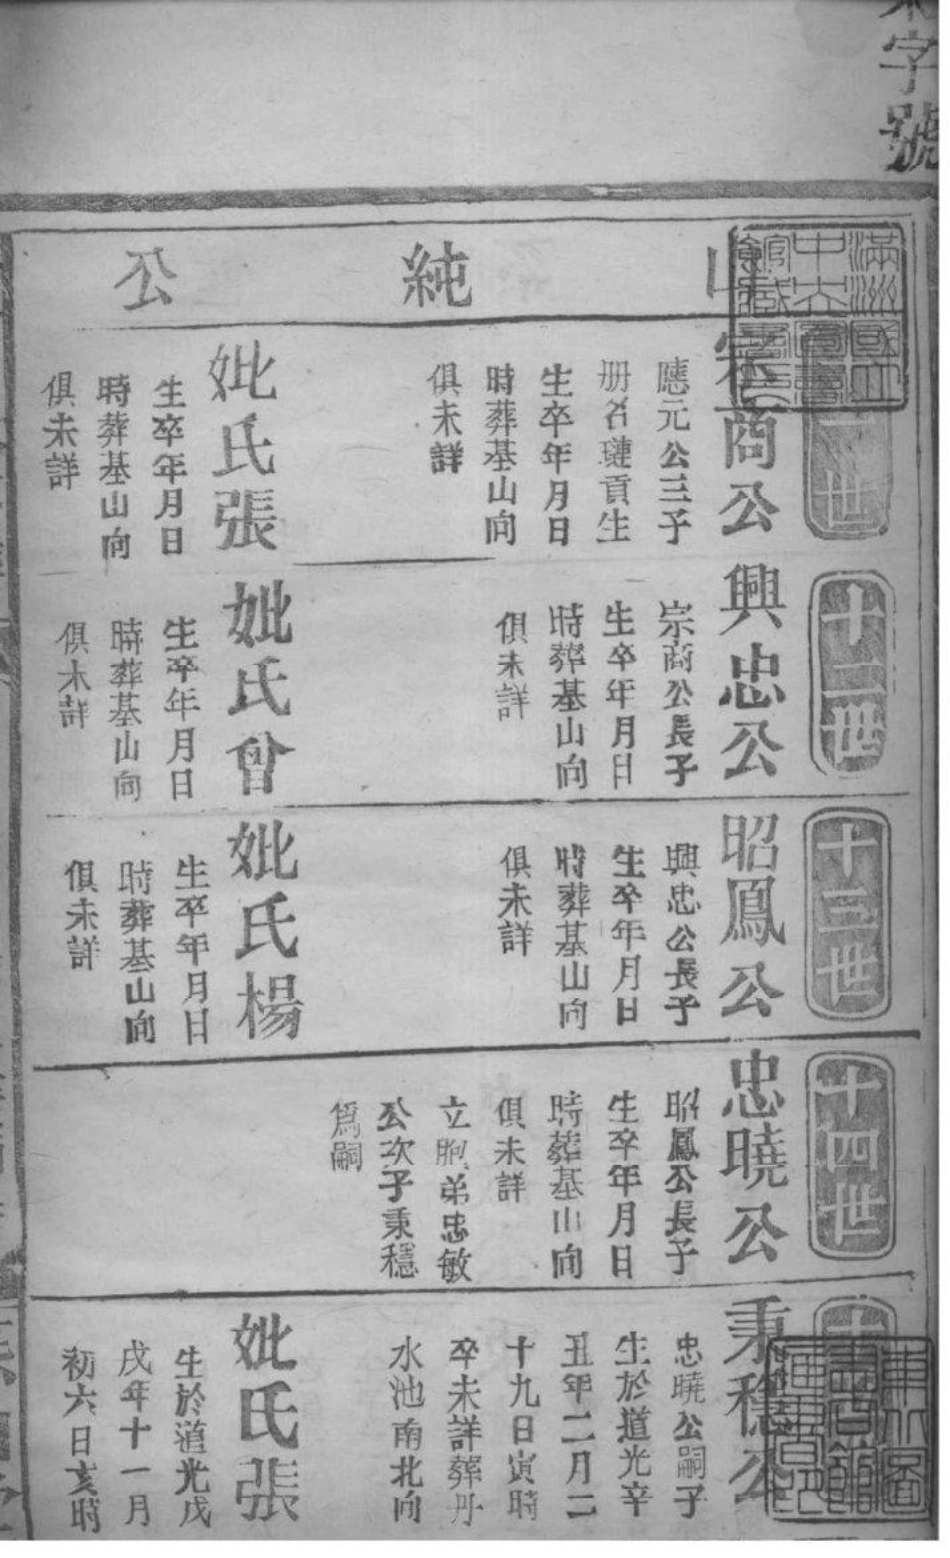 字號
山純公
一世
宗商公
應元公三子
册名璉貢生
生卒年月日
時葬基山向
俱未詳
妣氏張
生卒年月日
時葬基山向
俱未詳
十二世
興忠公
宗商公長子
生卒年月日
時葬基山向
俱未詳
妣氏曾
生卒年月日
時葬基山向
俱未詳
十三世
昭鳳公
興忠公長子
生卒年月日
時葬基山向
俱未詳
妣氏楊
生卒年月日
時葬基山向
俱未詳
十四世
忠曉公
昭鳳公長子
生卒年月日
時葬基山向
俱未詳
立胞弟忠敏
公次子秉穩
爲嗣
十
秉穩公
忠曉公嗣子
生於道光辛
丑年二月二
十九日寅時
卒未詳葬丹
水池南北向
妣氏張
生於道光戊
戌年十一月
初六日亥時
滿洲國立
中央圖書
館
東北圖
書館